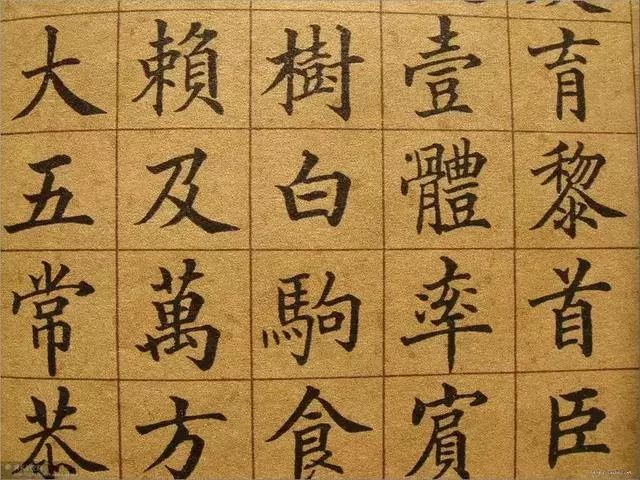 育黎首臣
壹體率賔
樹白駒食
賴及萬方
大五常恭